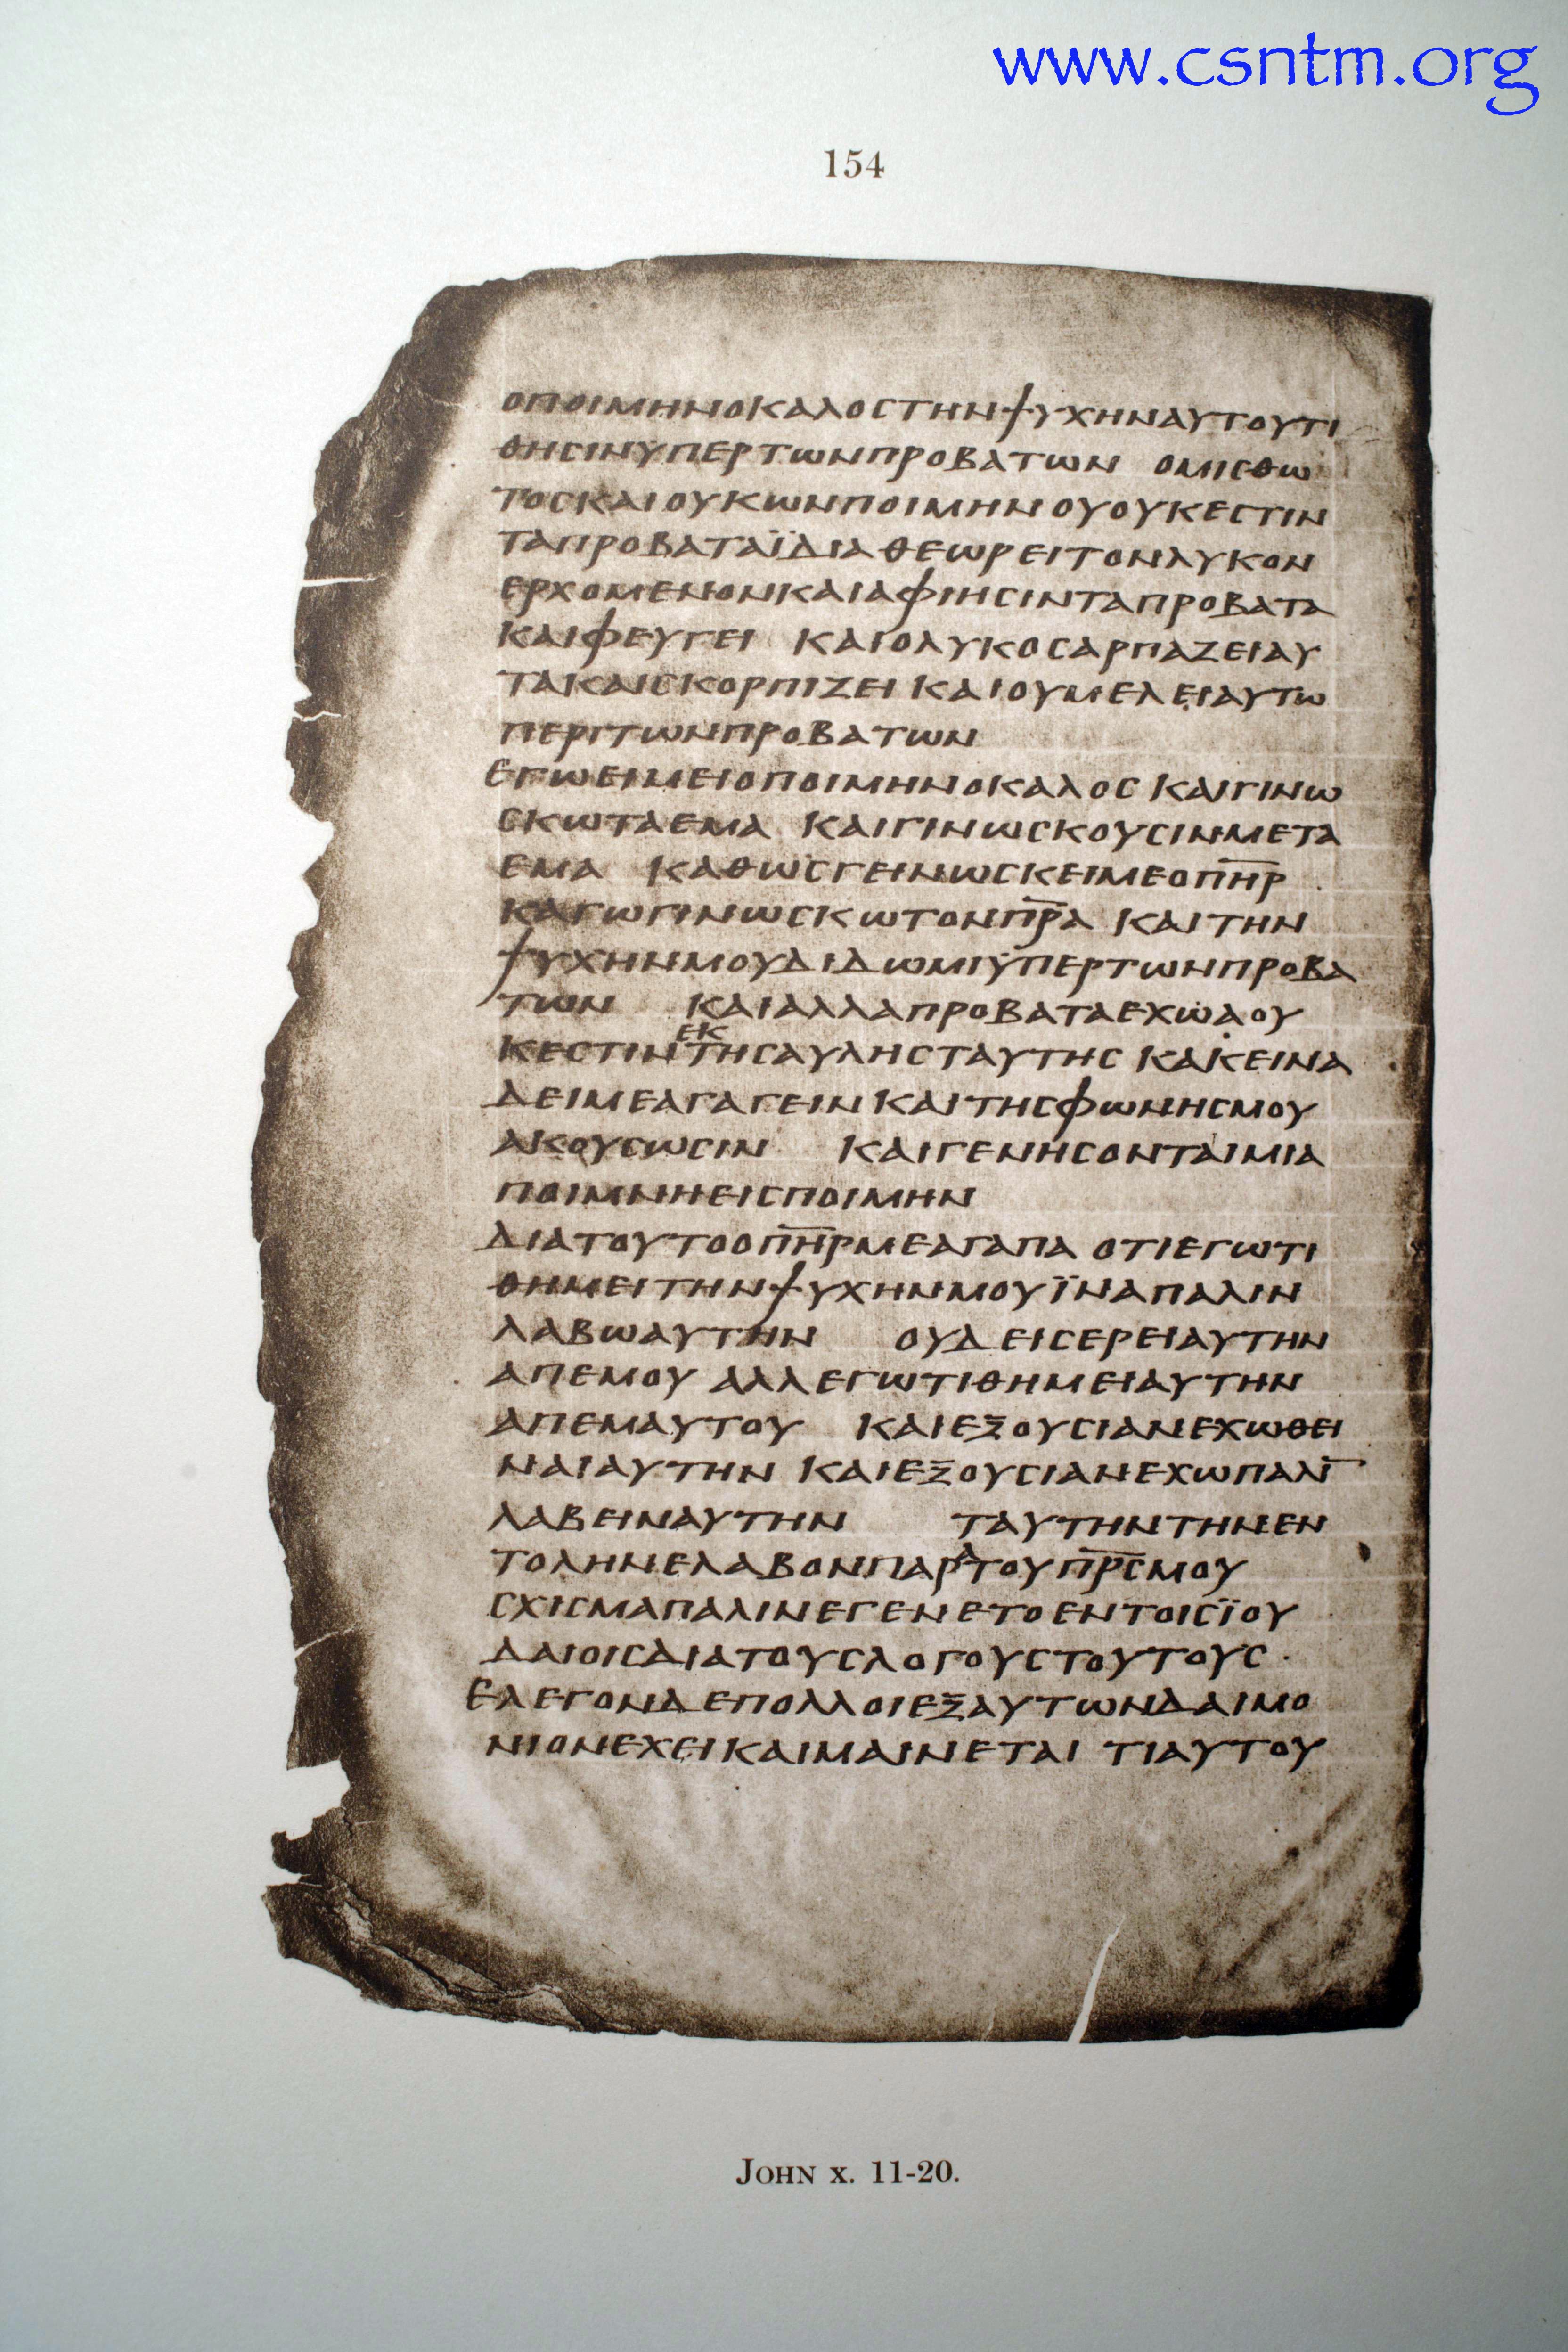 www.csntm.org
154
ΟΠΟΙΜΗΝΟΚΑΛΟϹΤΗΝΨΥΧΗΝΑΥΤΟΥΤΙ
ΘΗϹΙΝΫΠΕΡΤΩΝΠΡΟΒΑΤΩΝ ΟΜΙϹΘΩ
ΤΟϹΚΑΙΟΥΚΩΝΠΟΙΜΗΝΟΥΟΥΚΕϹΤΙΝ
ΤΑΠΡΟΒΑΤΑΪΔΙΑΘΕΩΡΕΙΤΟΝΛΥΚΟΝ
ΕΡΧΟΜΕΝΟΝΚΑΙΑΦΙΗϹΙΝΤΑΠΡΟΒΑΤΑ
ΚΑΙΦΕΥΓΕΙ ΚΑΙΟΛΥΚΟϹΑΡΠΑΖΕΙΑΥ
ΤΑΚΑΙϹΚΟΡΠΙΖΕΙΚΑΙΟΥΜΕΛΕΙΑΥΤΩ
ΠΕΡΙΤΩΝΠΡΟΒΑΤΩΝ
ΕΓΩΕΙΜΕΙΟΠΟΙΜΗΝΟΚΑΛΟϹ ΚΑΙΓΙΝΩ
ϹΚΩΤΑΕΜΑ ΚΑΙΓΙΝΩϹΚΟΥϹΙΝΜΕΤΑ
ΕΜΑ ΚΑΘΩϹΓΕΙΝΩϹΚΕΙΜΕΟΠ̅Η̅Ρ̅
ΚΑΓΩΓΙΝΩϹΚΩΤΟΝΠ̅Ρ̅Α̅ ΚΑΙΤΗΝ
ΨΥΧΗΝΜΟΥΔΙΔΩΜΙΫΠΕΡΤΩΝΠΡΟΒΑ
ΤΩΝ ΚΑΙΑΛΛΑΠΡΟΒΑΤΑΕΧΩΑΟΥ
ΚΕϹΤΙΝΕΚΤΗϹΑΥΛΗϹΤΑΥΤΗϹ ΚΑΚΕΙΝΑ
ΔΕΙΜΕΑΓΑΓΕΙΝΚΑΙΤΗϹΦΩΝΗϹΜΟΥ
ΑΚΟΥϹΩϹΙΝ ΚΑΙΓΕΝΗϹΟΝΤΑΙΜΙΑ
ΠΟΙΜΝΗΕΙϹΠΟΙΜΗΝ
ΔΙΑΤΟΥΤΟΟΠ̅Η̅Ρ̅ΜΕΑΓΑΠΑ ΟΤΙΕΓΩΤΙ
ΘΗΜΕΙΤΗΝΨΥΧΗΝΜΟΥΪΝΑΠΑΛΙΝ
ΛΑΒΩΑΥΤΗΝ ΟΥΔΕΙϹΕΡΕΙΑΥΤΗΝ
ΑΠΕΜΟΥ ΑΛΛΕΓΩΤΙΘΗΜΕΙΑΥΤΗΝ
ΑΠΕΜΑΥΤΟΥ ΚΑΙΕΞΟΥϹΙΑΝΕΧΩΘΕΙ
ΝΑΙΑΥΤΗΝ ΚΑΙΕΞΟΥϹΙΑΝΕΧΩΠΑΛΙ̅
ΛΑΒΕΙΝΑΥΤΗΝ ΤΑΥΤΗΝΤΗΝΕΝ
ΤΟΛΗΝΕΛΑΒΟΝΠΑΡΑΤΟΥΠ̅Ρ̅Ϲ̅ΜΟΥ
ϹΧΙϹΜΑΠΑΛΙΝΕΓΕΝΕΤΟΕΝΤΟΙϹΪΟΥ
ΔΑΙΟΙϹΔΙΑΤΟΥϹΛΟΓΟΥϹΤΟΥΤΟΥϹ·
ΕΛΕΓΟΝΔΕΠΟΛΛΟΙΕΞΑΥΤΩΝΔΑΙΜΟ
ΝΙΟΝΕΧΕΙΚΑΙΜΑΙΝΕΤΑΙ ΤΙΑΥΤΟΥ
JOHN X. 11-20.